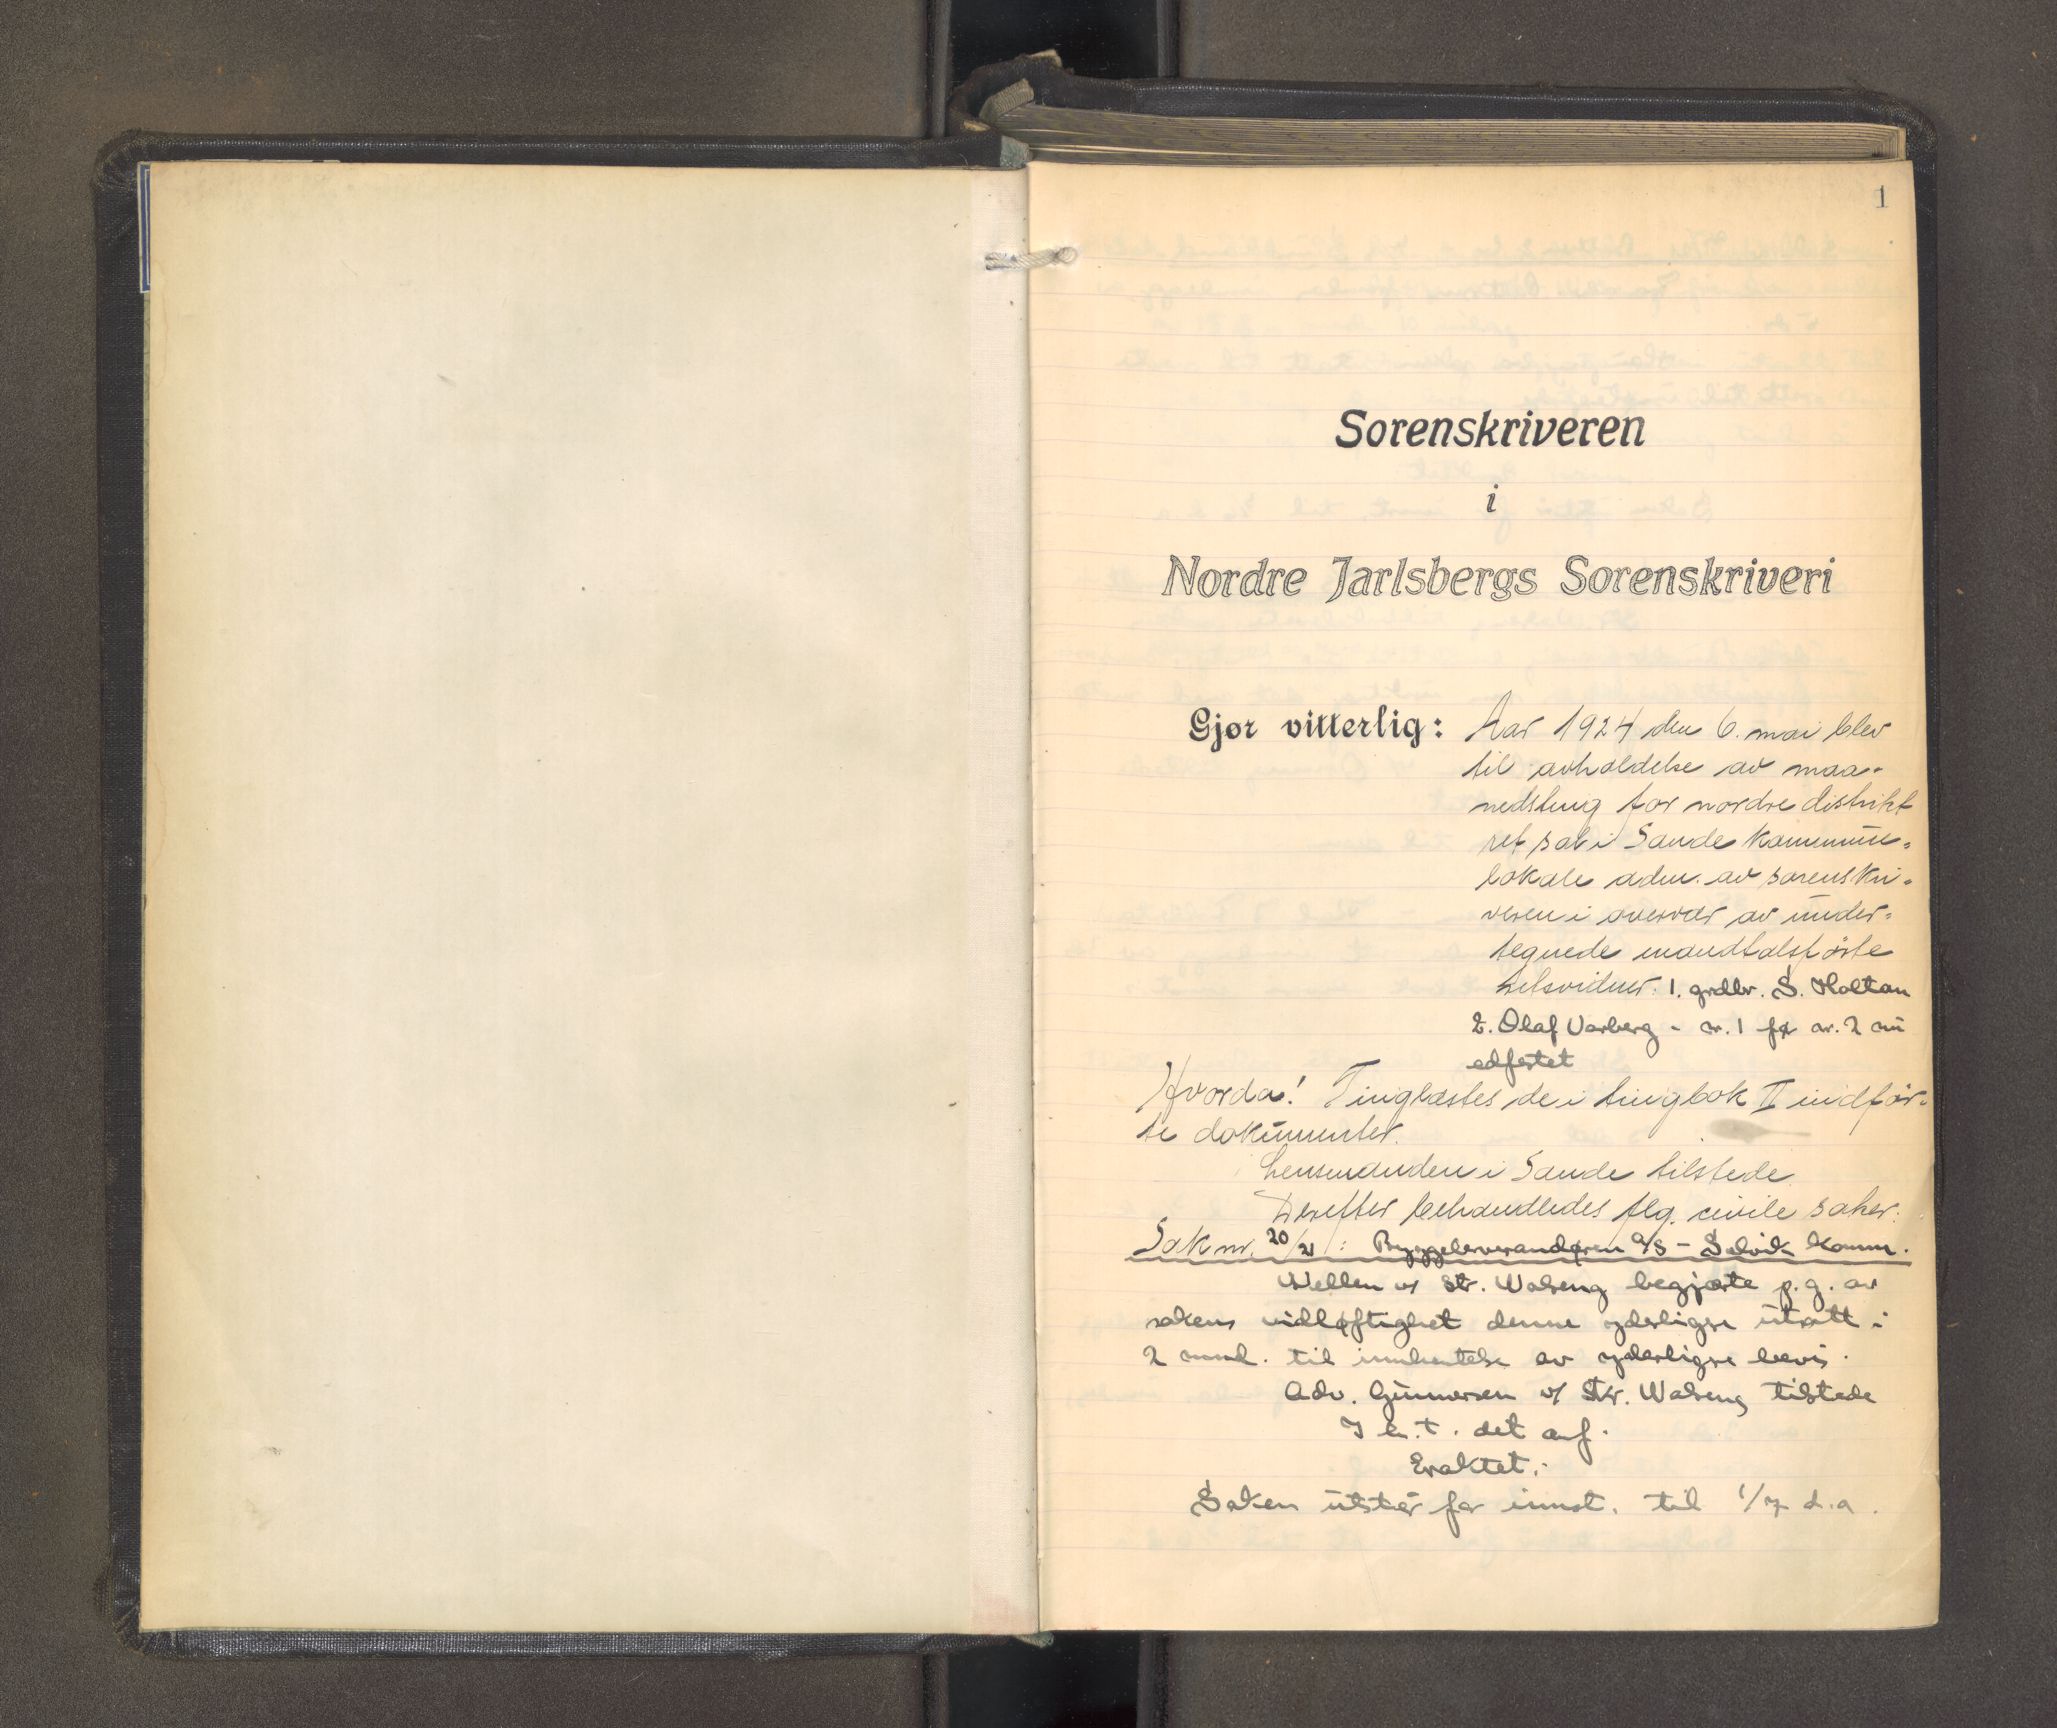 1
Sorenskriveren
i
Nordre Jarlsbergs Sorenskriveri
Gjør vitterlig: Aar 1924 den 6. mai blev
til avholdelse av maa-
nedsting for nordre distrikt
ret sat i Sande kommune-
lokale adm. av sorenskri-
veren i overvær av under-
tegnede mandtalsførte
retsvidner: 1. grdbr. S. Holtan
2. Olaf Varberg - nr. 1 før nr. 2 nu
edfæstet
Hvorda! Tinglæstes de i tingbok II indfør-
te dokumenter.
Lensmanden i Sande tilstede.
Derefter behandledes flg. civile saker:
Sak nr. 20/21: Byggeleverandøren a/s - Selvik komm.
Wellen v/ str. Walseng begjærte p.g. av
sakens vidløftighet denne yderligere utsatt i
2 mnd. til innhentelse av yderligere bevis.
Adv. Gunnersen v/ Str. Walseng tilstede
det anf.
Eraktet:
Saken utstår for innst. til 1/7 d.a.